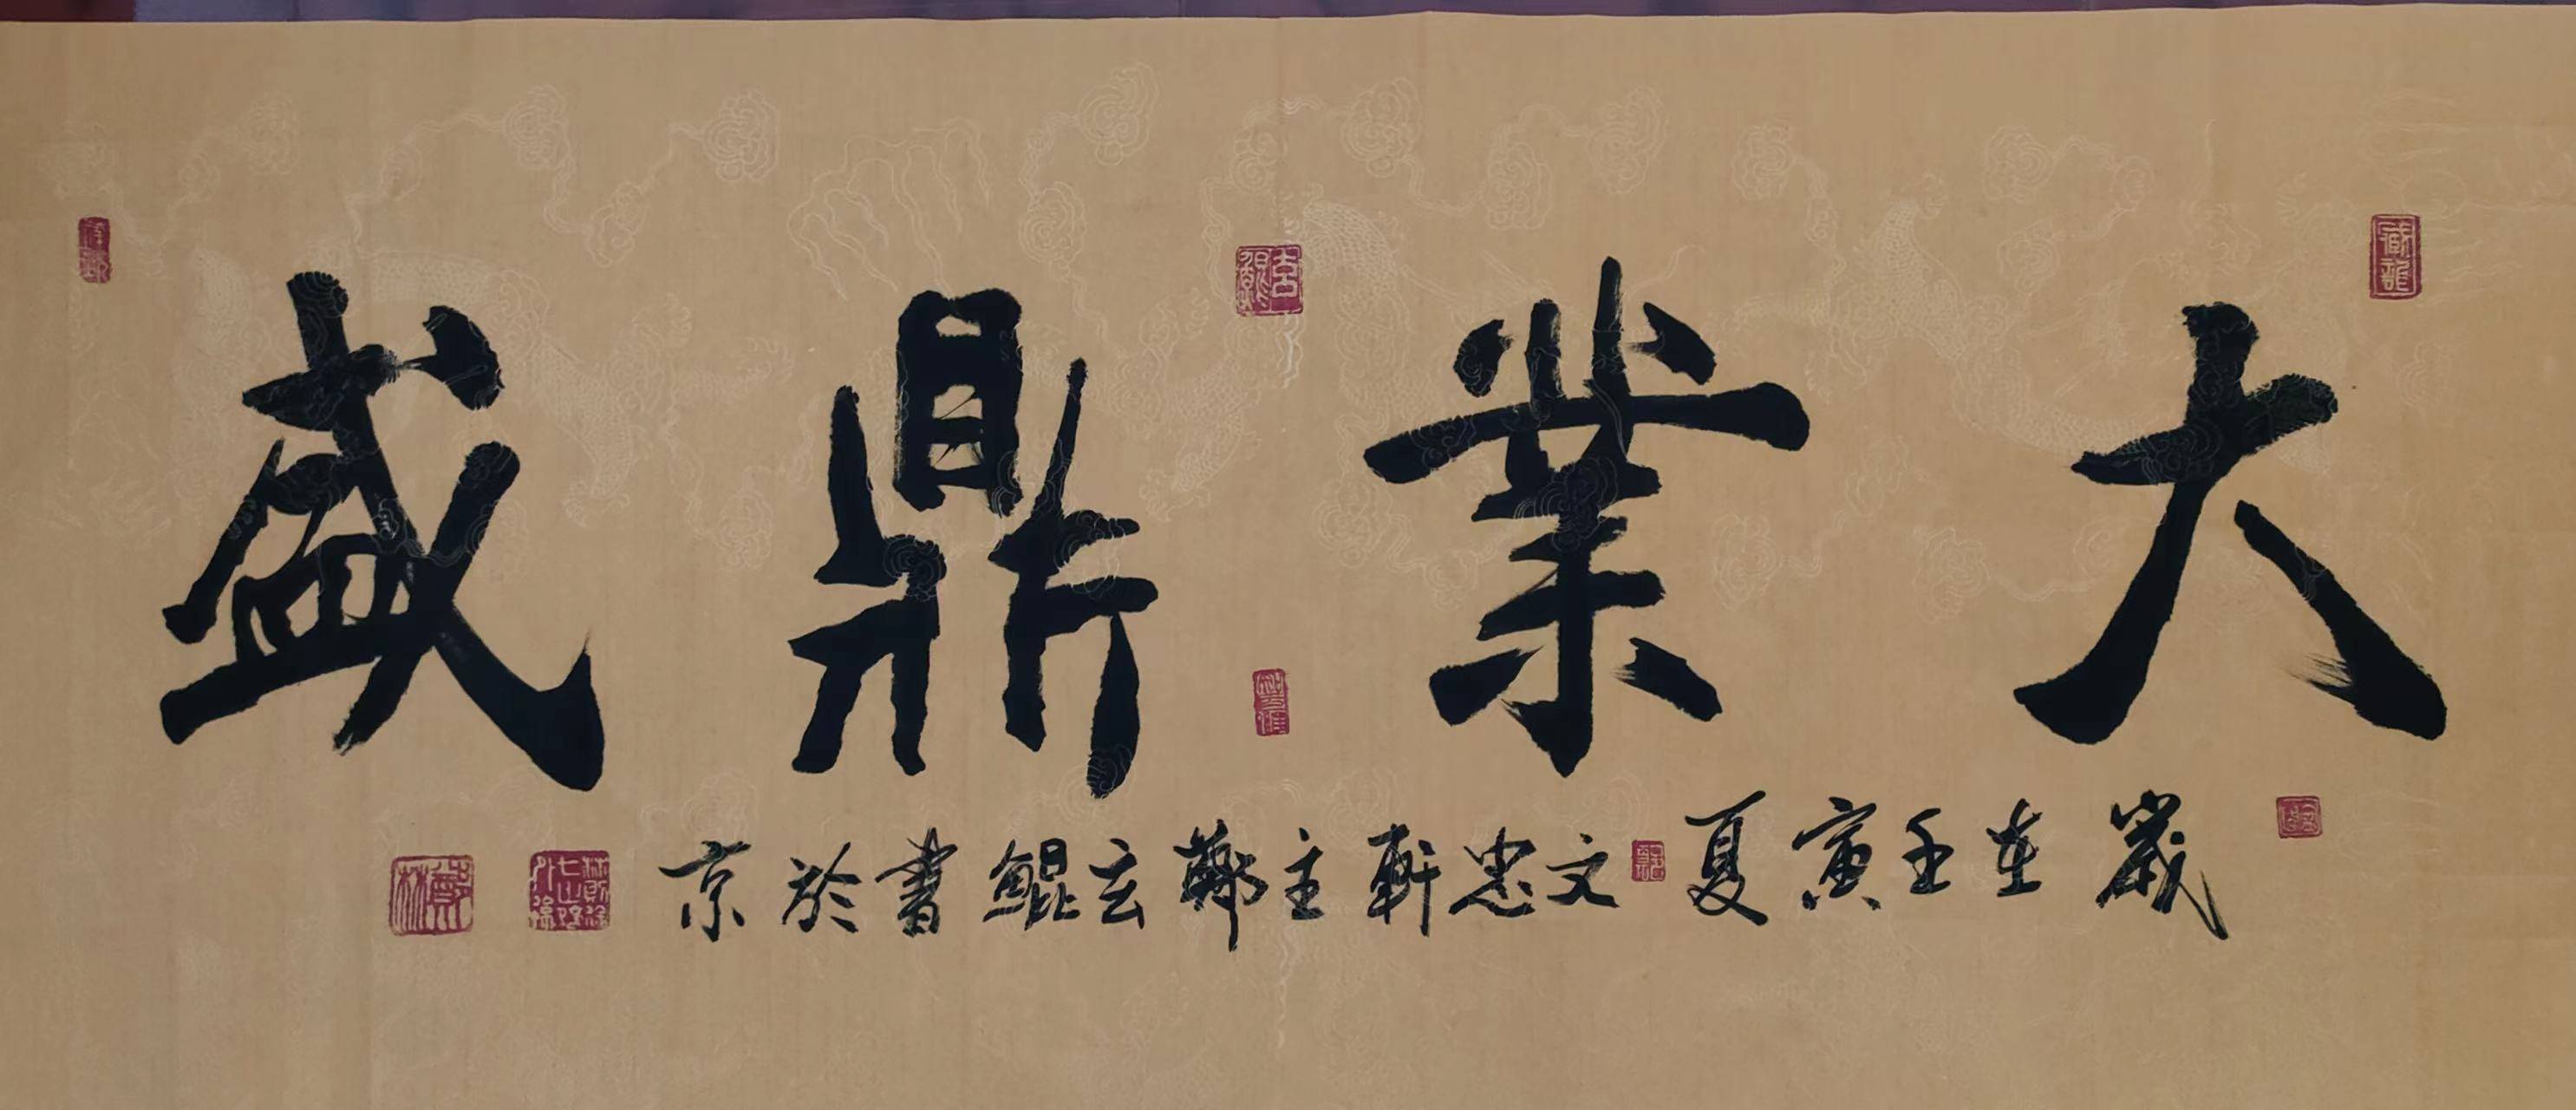 大業鼎盛
歲在壬寅夏文忠軒主鄭玄鲲書於京